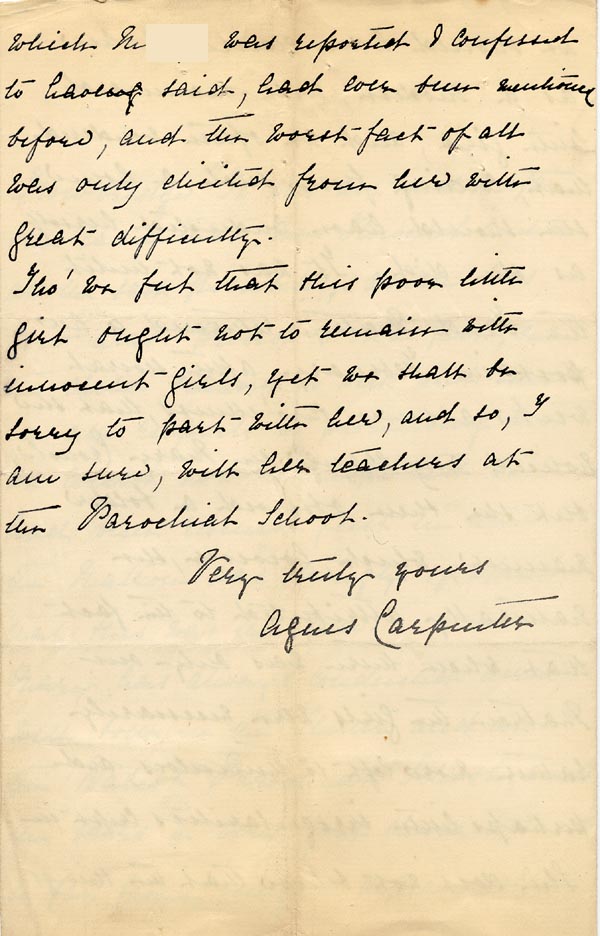 which M was reported & confessed
to having said, had ever been mentioned
before, and the worst fact of all
was only elicited from her with
great difficulty.
Tho' we feel that this poor little
girl ought not to remain with
innocent girls, yet we shall be
sorry to part with her, and so, I
am sure, will her teachers at
the Parochial School.
Very truly yours
Agnes Carpenter